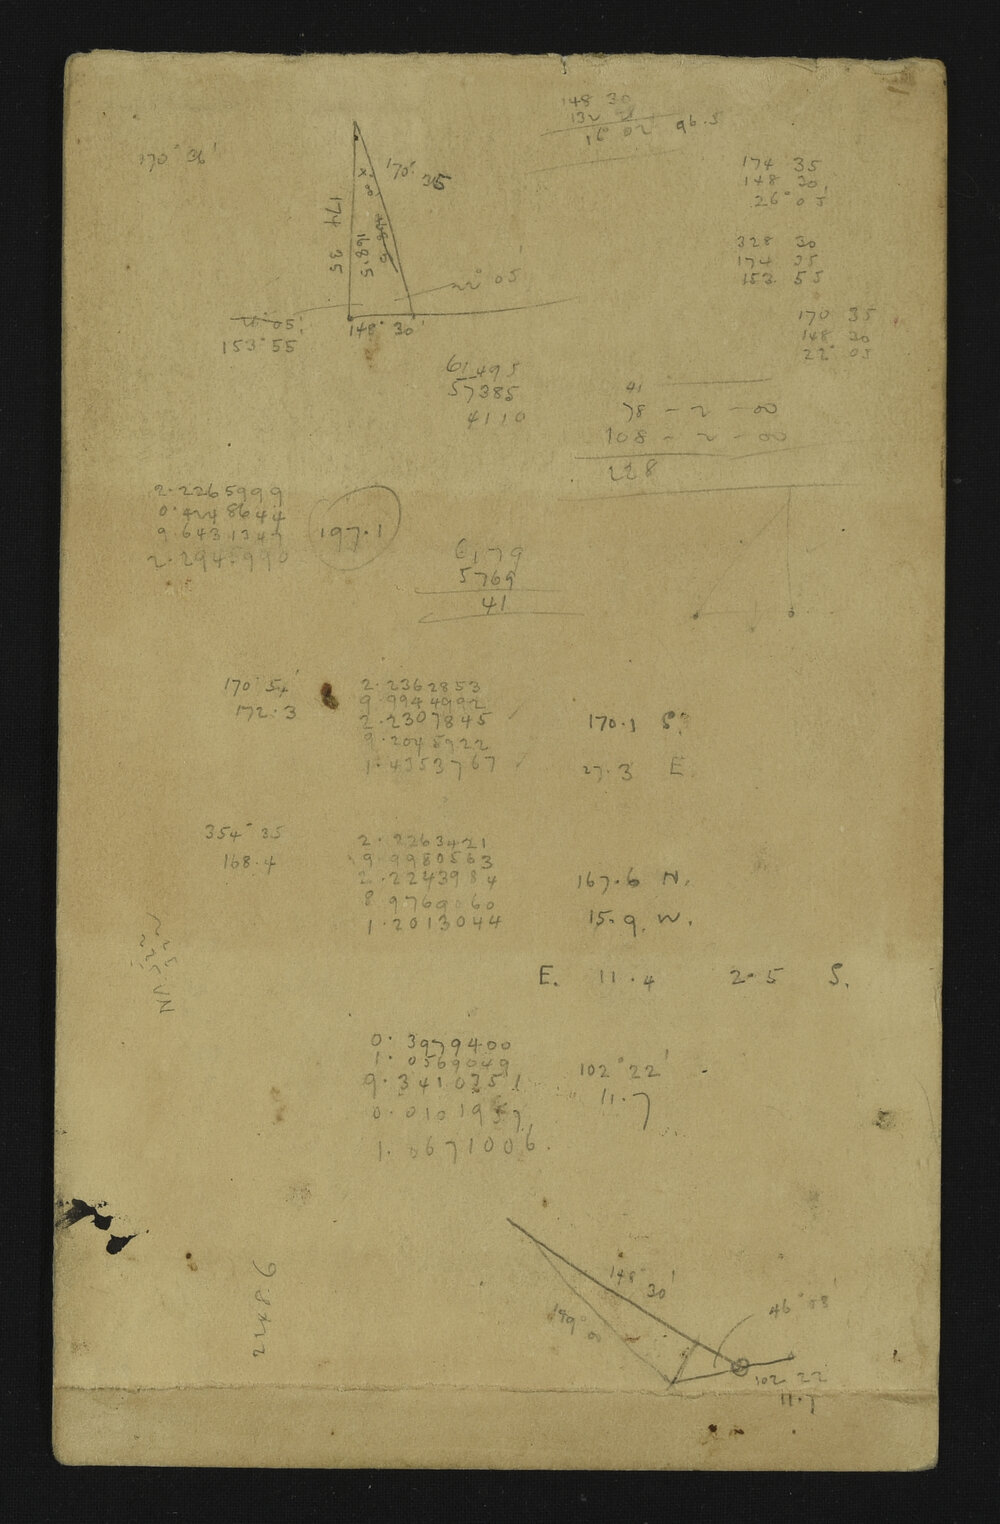 148 30
16° 02 96.5
170° 36'
170° 35
174 35
168.5
174 35
148 30
26° 05'
328 30
174 35
153 55
22° 05'
153° 55
148° 30'
170 35
148 30
22° 05
61495
57385
4110
41
78 - 2 - 00
108 - 2 - 00
228
2.2265999
0.4248644
9.6431347
2.2945990
197.1
6179
5769
41
170° 54'
172.3
2.2362853
9.9944992
2.2307845
9.2045922
1.4353767
170.1 S.
27.3 E
354° 35
168.4
2.2263421
9.9980563
2.2243984
8.9769060
1.2013044
167.6 N.
15.9 W.
E. 11.4 2.5 S.
0.3979400
1.0569049
9.3410351
0.0101957
1.0671006
102° 22'
11.7
2248.6
148° 30'
46° 08'
102 22
11.7